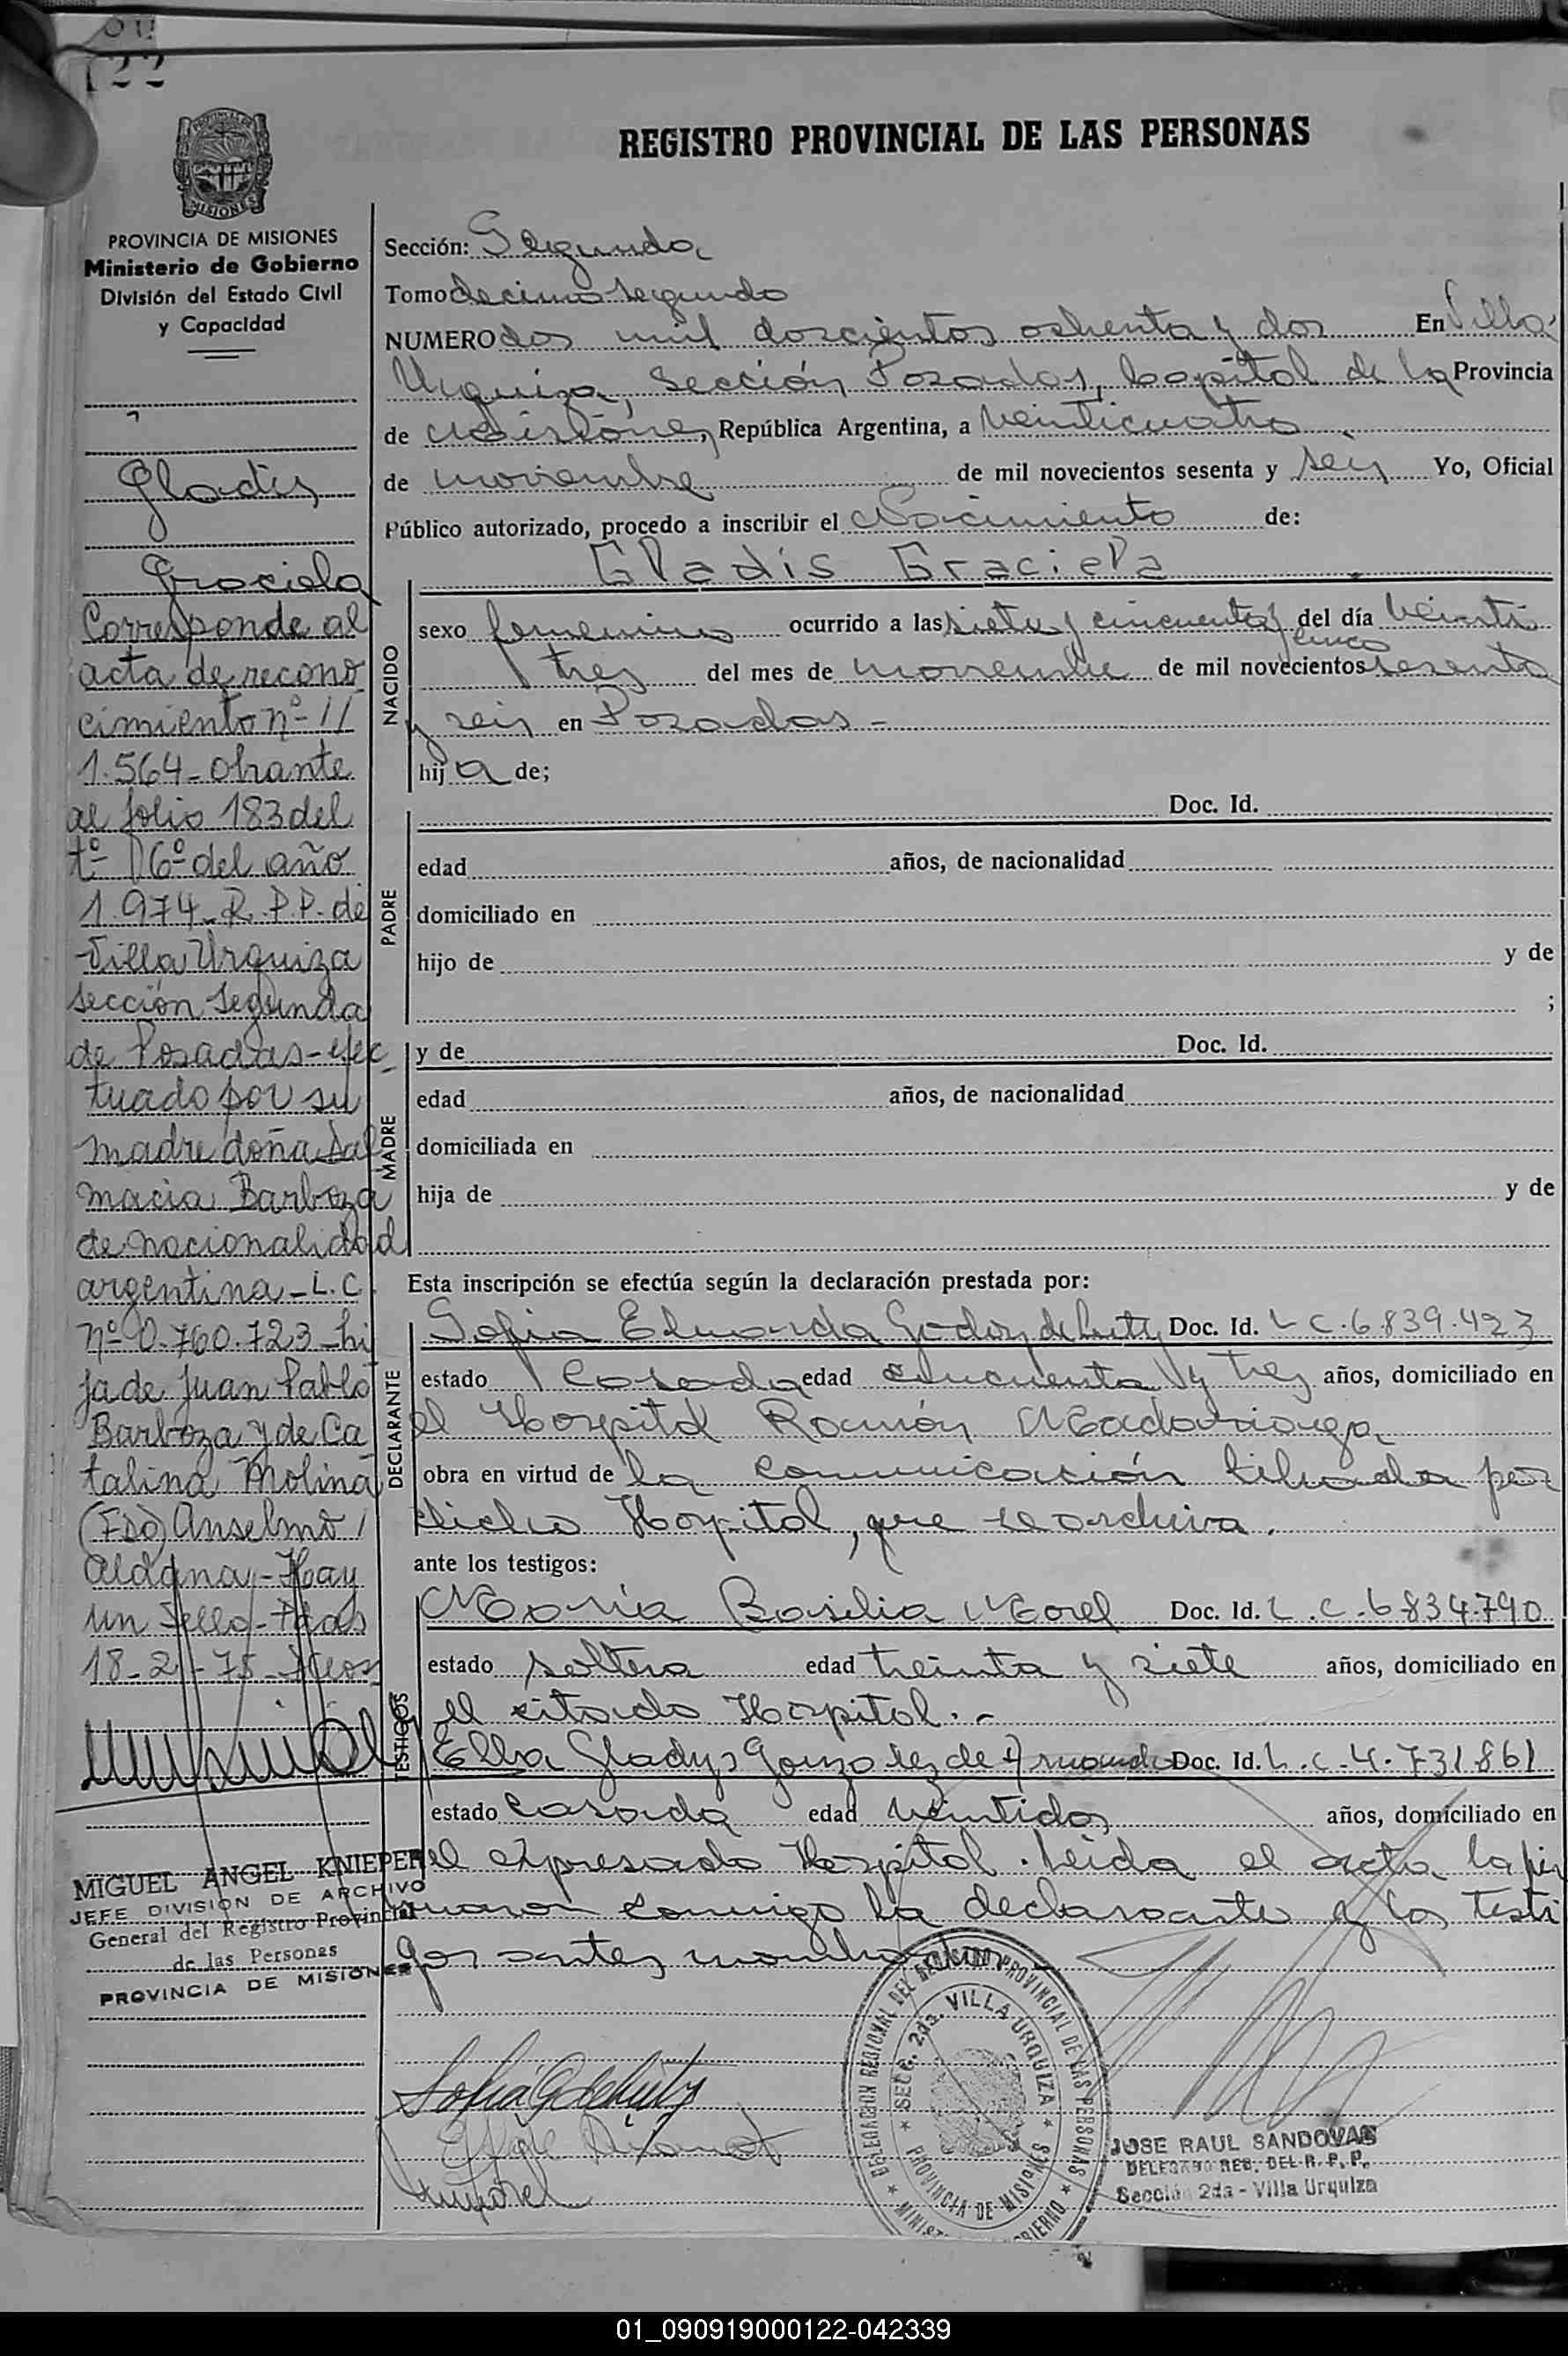 122
REGISTRO PROVINCIAL DE LAS PERSONAS
MISIONES
PROVINCIA DE MISIONES
Ministerio de Gobierno
División del Estado Civil
y Capacidad
Gladis
Graciela
Corresponde al
acta de recono
cimiento nº II
1.564 - obrante
al folio 183 del
tº 16º del año
1.974 - R.P.P. de
Villa Urquiza
sección segunda
de Posadas - efec
tuado por su
madre doña Dal
macia Barboza
de nacionalidad
argentina - L.C.
nº 0.760.723 - hi
ja de Juan Pablo
Barboza y de Ca
talina Molina
(Fdo) Anselmo
Aldana - Hay
un sello - Pdas
18-2-75
MIGUEL ANGEL KNIEPER
JEFE DIVISION DE ARCHIVO
General del Registro Provincial
de las Personas
PROVINCIA DE MISIONES
Sección: Segunda
Tomo decimo segundo
NUMERO dos mil doscientos ochenta y dos En Villa
Urquiza, Sección Posadas, Capital de la Provincia
de Misiones, República Argentina, a veinticuatro
de noviembre de mil novecientos sesenta y seis Yo, Oficial
Público autorizado, procedo a inscribir el Nacimiento de:
Gladis Graciela
NACIDO
sexo femenino ocurrido a las siete y cincuenta y cinco del día veinti
tres del mes de noviembre de mil novecientos sesenta
y seis en Posadas -
hija de;
PADRE
Doc. Id.
edad años, de nacionalidad
domiciliado en
hijo de y de
;
MADRE
y de Doc. Id.
edad años, de nacionalidad
domiciliada en
hija de y de
Esta inscripción se efectúa según la declaración prestada por:
DECLARANTE
Sofia Eduarda Godoy de Doc. Id. L C. 6.839.423
estado Casada edad cincuenta y tres años, domiciliado en
el Hospital Ramón Madariaga
obra en virtud de la comunicación librada por
dicho Hospital, que se archiva.
ante los testigos:
TESTIGOS
María Basilia Morel Doc. Id. L.C. 6834.790
estado soltera edad treinta y siete años, domiciliado en
el citado Hospital. -
Elba Gladys Gonzalez de Doc. Id. L.C. 4.731.861
estado casada edad veintidos años, domiciliado en
el expresado Hospital. Leida el acta la fir
maron conmigo la declarante y los testi
gos antes nombrados
DELEGACION REGIONAL DEL REGISTRO PROVINCIAL DE LAS PERSONAS
SECC. 2da. VILLA URQUIZA
PROVINCIA DE MISIONES
JOSE RAUL SANDOVAL
DELEGADO REG. DEL R. P. P.
Sección 2da - Villa Urquiza
01_090919000122-042339